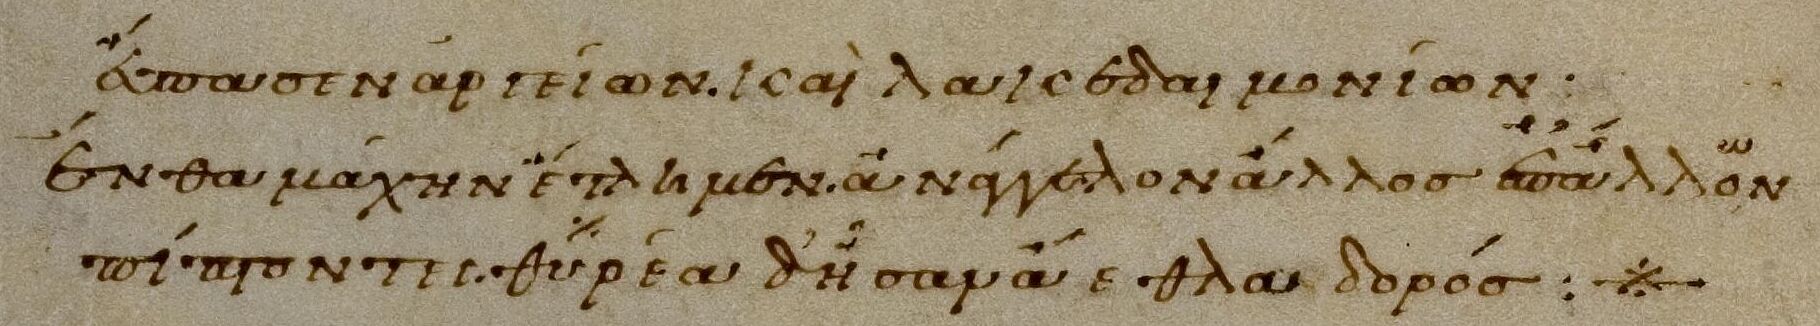 ἅπασεν ἀργείων. καὶ λακεδαιμονίων:
ἔνθα μάχην ἔτλημεν. ἀνάγγελον ἄλλος ἐπ' ἄλλον
πίπτοντες. θυρέα δ' ἦσαν ἄεθλα δορός: